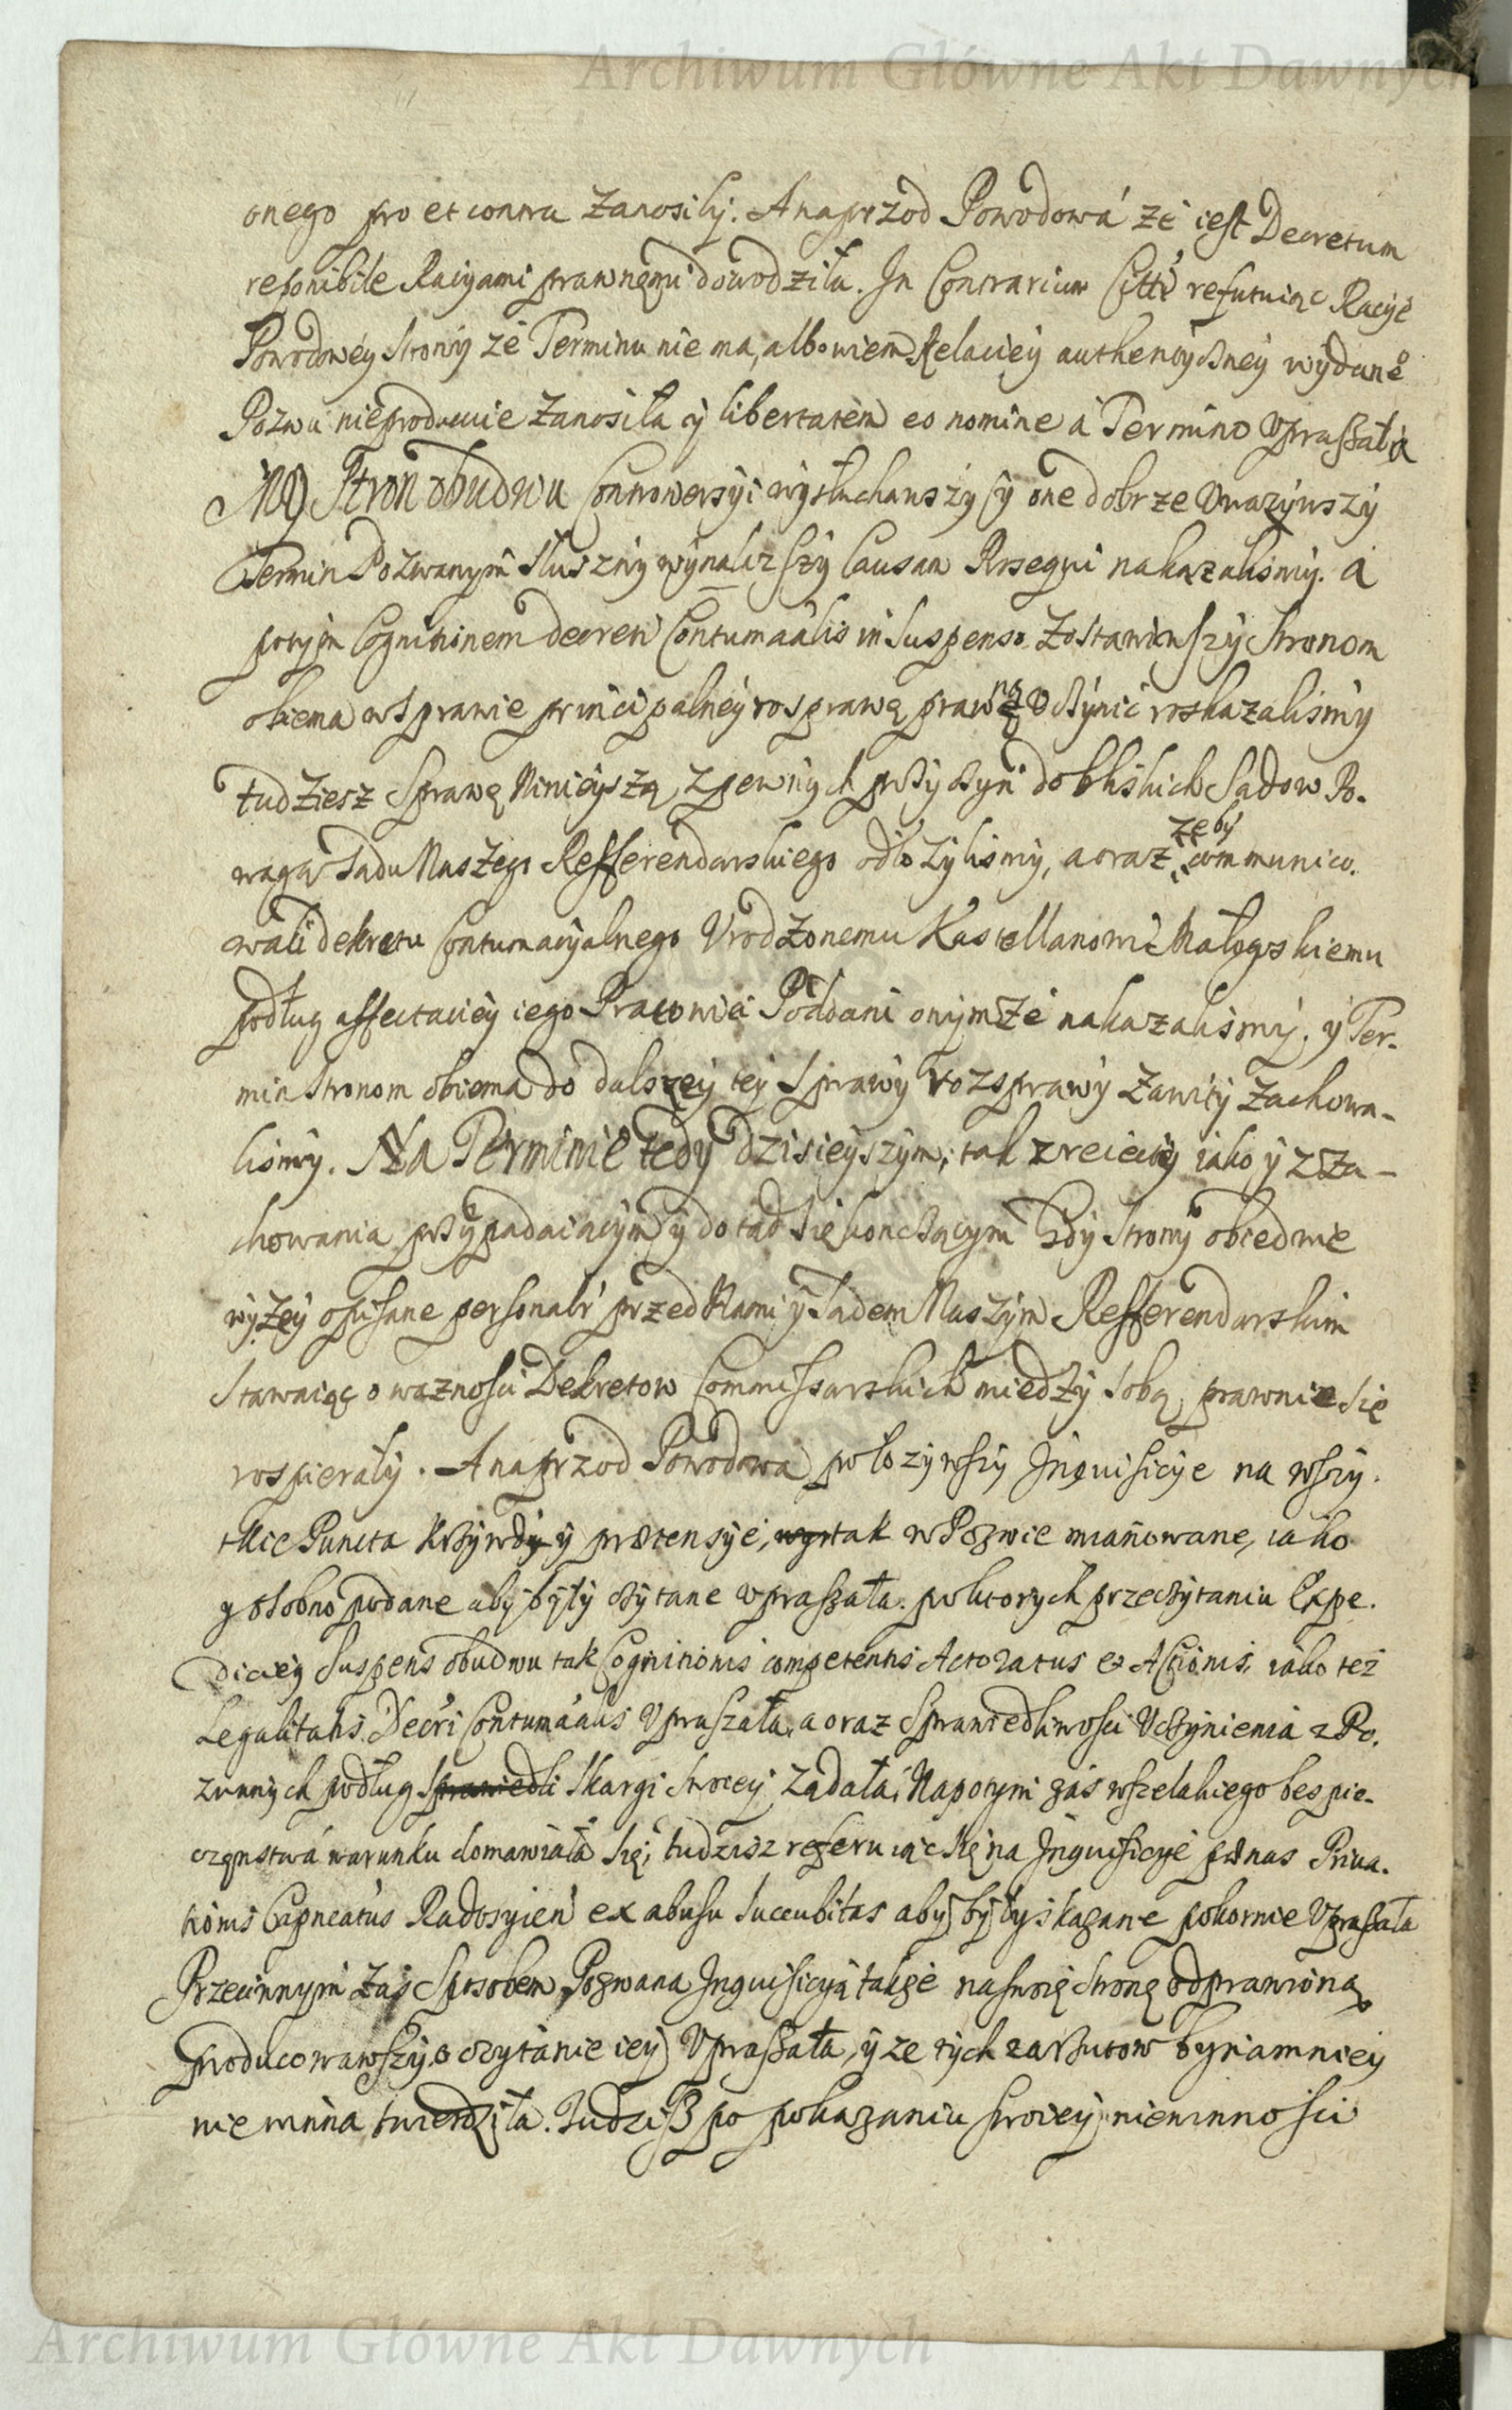 Archiwum Główne Akt Dawnych
onego pro et contra zanosiły. A naprzod Powodowa że iest Decretum
reponibile Racyami prawnęmi dowodziła. In Contrarium Citta refutuiąc Racye
Powodowey Strony że Terminu nie ma, albowiem Relaciey authentyczney wydane°
Pozwu nieproducuie zanosiła y libertatem eo nomine a Termino vpraszała
My Stron obudwu Controwersyi wysłuchawszy y one dobrze vważywszy
Termin Pozwanym słuszny wynalazszy Causam Prosequi nakazalismy. a
potym Cognitionem decreti Contumatialis in suspenso zostawiwszy Stronom
obiema w sprawie principalney rosprawę prawną vczynić roskazalismy
tudziesz Sprawę Ninieyszą z pewnych przyczyn do bliskich Sądow Po-
wagą Sądu Naszego Refferendarskiego odłożylismy, a oraz żeby communico-
wali dekretu Contumacyalnego Vrodzonemu Kasztellanowi Małogskiemu
podług affectaciey iego Prawowie Poddani onymże nakazalismy, y Ter-
min Stronom obiema do dalszey tey sprawy rozsprawy zawity zachowa-
lismy. Na Terminie tedy dzisieyszym, tak z reiecty iako y z za-
chowania przypadaiącym y dotąd się kończącym gdy Strony obiedwie
wyżey opisane personalr przed Nami y Sądem Naszym Refferendarskim
stawaiąc o ważnosci Dekretow Commissarskich miedzy sobą prawnie się
rospierały. A naprzod Powodowa położywszy Inquisicye na wszy-
tkie Puncta Krzywdy y prætensye, tak w Pozwie mianowane, iako
y osobno podane aby były czytane vpraszała. po ktorych przeczytaniu Expe-
diciey suspens obudwu tak Cognitionis competentis Actoratus et Actionis, iako też
Legalitatis Decri Contumatialis vpraszała, a oraz Sprawiedliwosci vczynienia z Po-
zwanych podług sprawiedli skargi swoiey żądała, Napotym zaś wszelakiego bespie-
częnstwa warunku domawiała się, tudzisz referuiąc się na Inquisicye pœnas Priva-
tionis Capneatus Radosyien ex abusu succubitas aby były skazane pokornie vpraszała
Przeciwnym zaś sposobem Pozwana Inquisicyą także na swoię stronę odprawioną
producowawszy o czytanie iey vpraszała, y że tych zarzutow bynamniey
nie winna twierdziła. Tudzisz po pokazaniu swoiey niewinnosci
Archiwum Główne Akt Dawnych